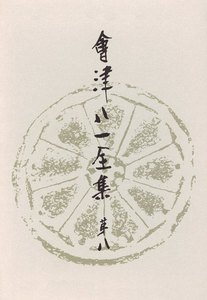 會津八一全集 第八